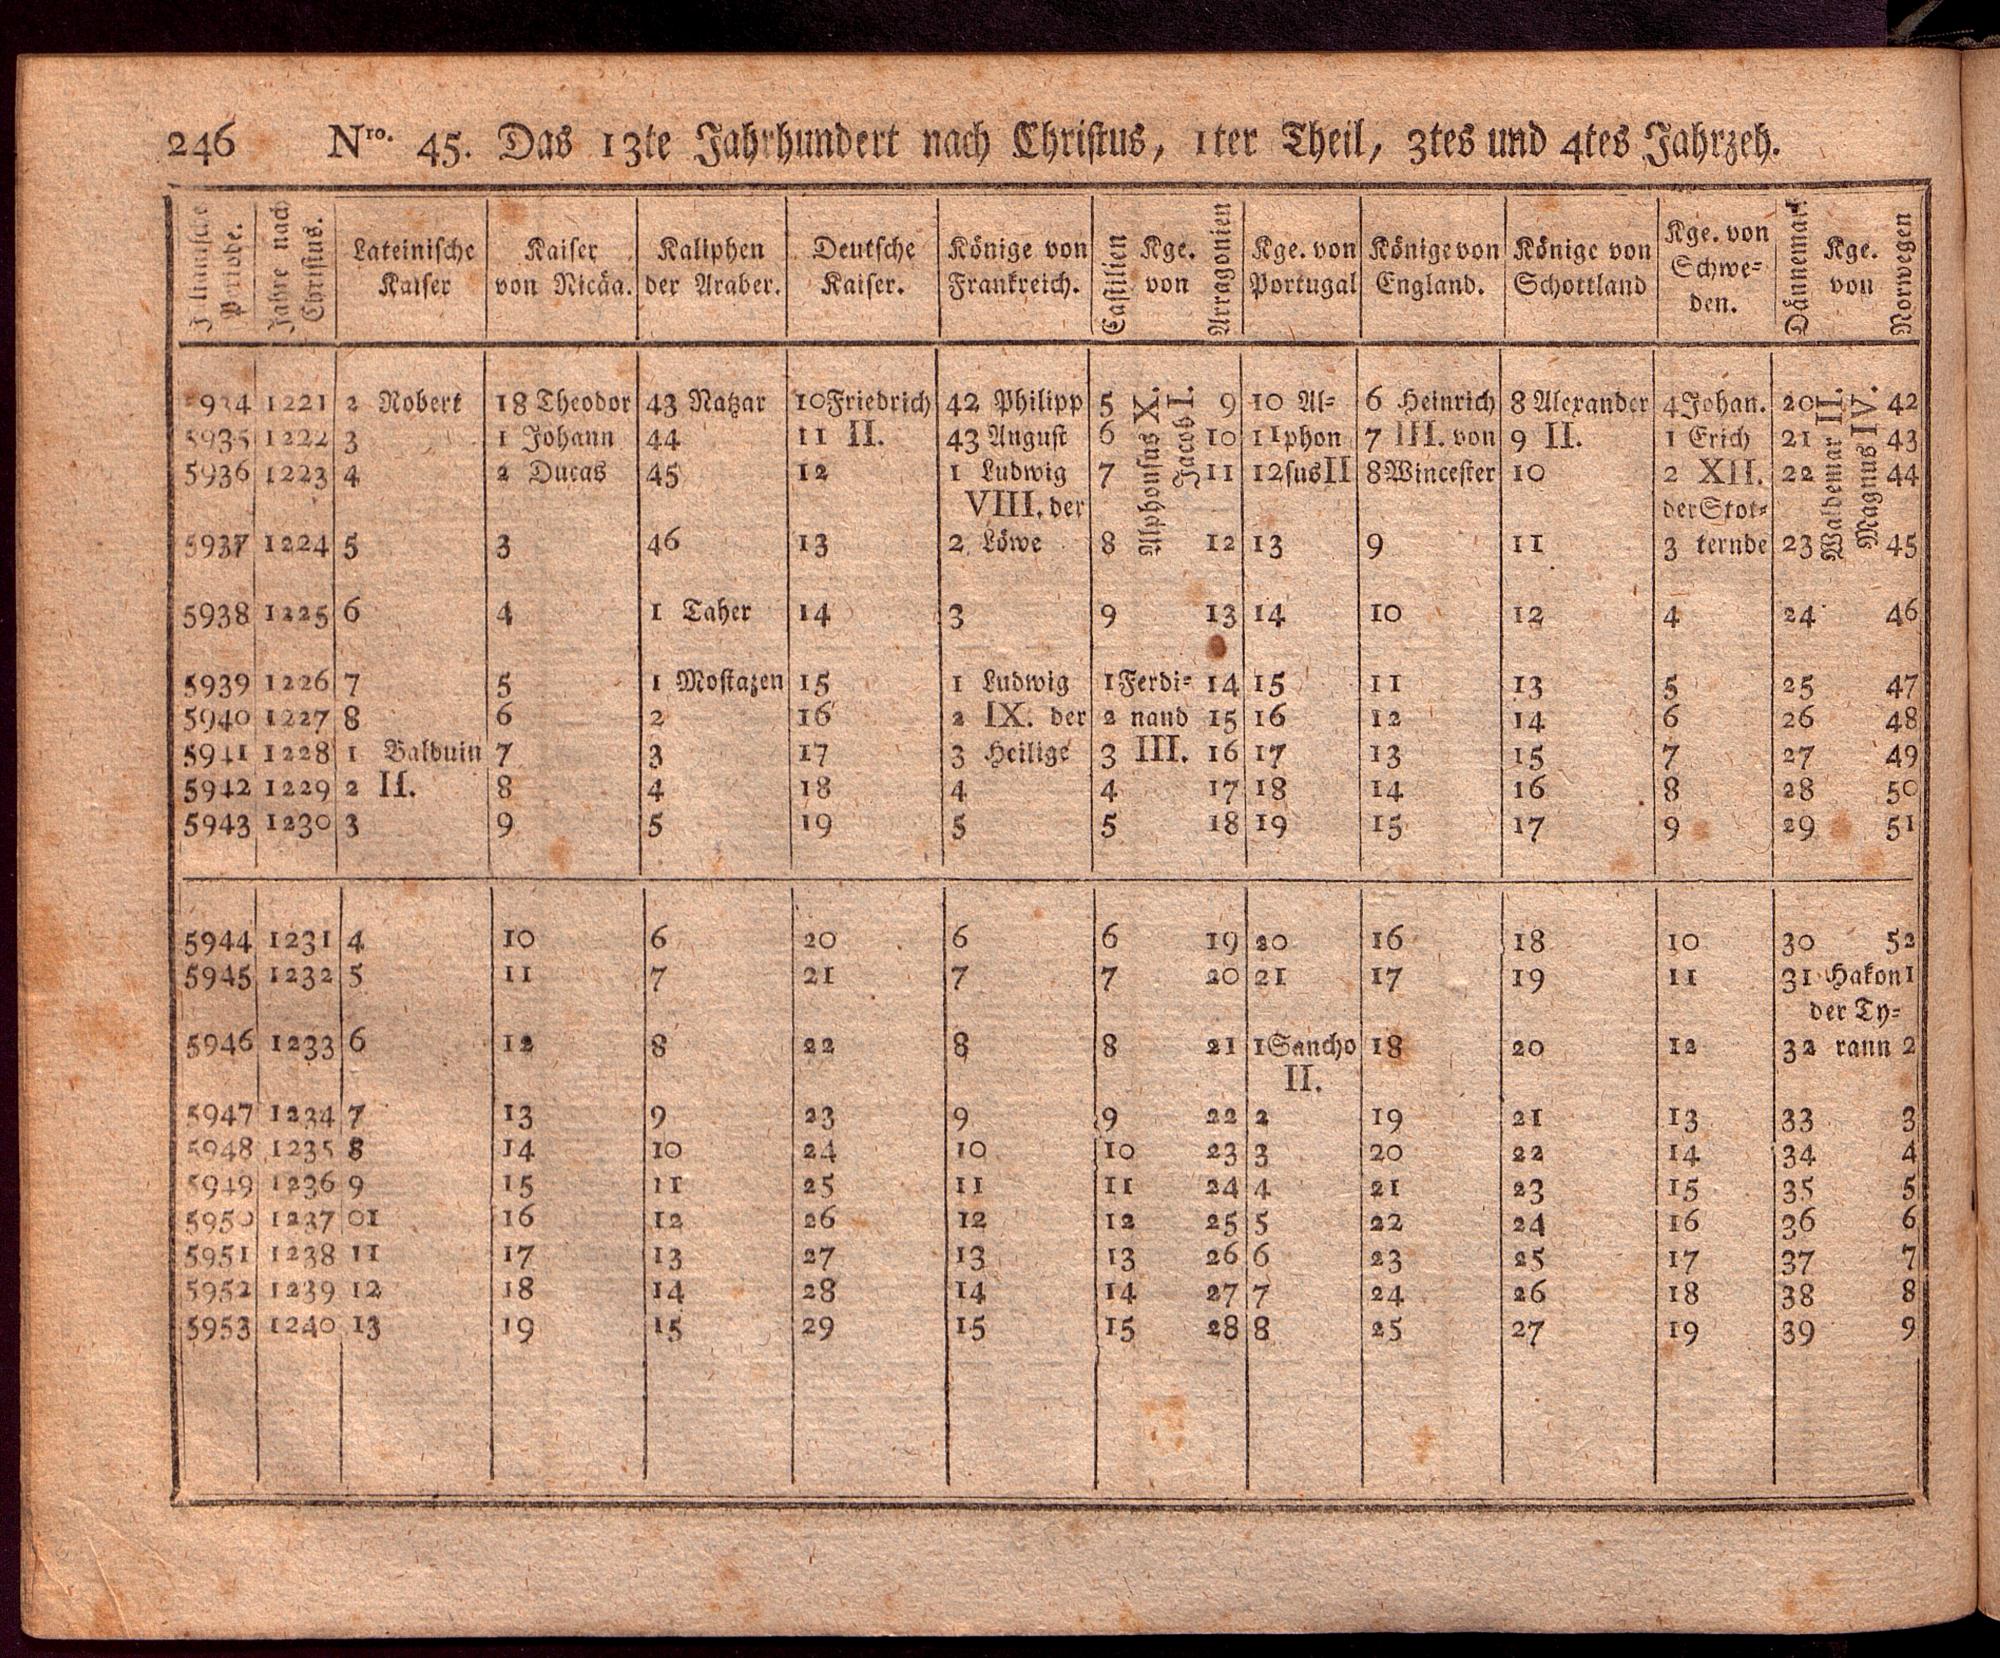 246 Nro. 45. Das 13te Jahrhundert nach Christus, 1ter Theil, 3tes und 4tes Jahrzeh.
Julianische Periode. Jahre nach Christus. Lateinische Kaiser Kaiser von Nicäa. Kaliphen der Araber. Deutsche Kaiser. Könige von Frankreich. Castilien Kge. von Arragonien Kge. von Portugal Könige von England. Könige von Schottland Kge. von Schwe= den. Dännemark. Kge. von Norwegen
Alphonsus X. Jacob I. Waldemar II. Magnus IV.
934 1221 2 Robert 18 Theodor 43 Natzar 10 Friedrich 42 Philipp 5 9 10 Al= 6 Heinrich 8 Alexander 4 Johan. 20 42
5935 1222 3 1 Johann 44 11 II. 43 August 6 10 11 phon 7 III. von 9 II. 1 Erich 21 43
5936 1223 4 2 Ducas 45 12 1 Ludwig 7 11 12 sus II 8 Wincester 10 2 XII. 22 44
VIII. der der Stot=
5937 1224 5 3 46 13 2 Löwe 8 12 13 9 11 3 ternde 23 45
5938 1225 6 4 1 Taher 14 3 9 13 14 10 12 4 24 46
5939 1226 7 5 1 Mostazen 15 1 Ludwig 1 Ferdi= 14 15 11 13 5 25 47
5940 1227 8 6 2 16 2 IX. der 2 nand 15 16 12 14 6 26 48
5941 1228 1 Balduin 7 3 17 3 Heilige 3 III. 16 17 13 15 7 27 49
5942 1229 2 II. 8 4 18 4 4 17 18 14 16 8 28 50
5943 1230 3 9 5 19 5 5 18 19 15 17 9 29 51
5944 1231 4 10 6 20 6 6 19 20 16 18 10 30 52
5945 1232 5 11 7 21 7 7 20 21 17 19 11 31 Hakon 1
der Ty=
5946 1233 6 12 8 22 8 8 21 1 Sancho 18 20 12 32 rann 2
II.
5947 1234 7 13 9 23 9 9 22 2 19 21 13 33 3
5948 1235 8 14 10 24 10 10 23 3 20 22 14 34 4
5949 1236 9 15 11 25 11 11 24 4 21 23 15 35 5
5950 1237 01 16 12 26 12 12 25 5 22 24 16 36 6
5951 1238 11 17 13 27 13 13 26 6 23 25 17 37 7
5952 1239 12 18 14 28 14 14 27 7 24 26 18 38 8
5953 1240 13 19 15 29 15 15 28 8 25 27 19 39 9